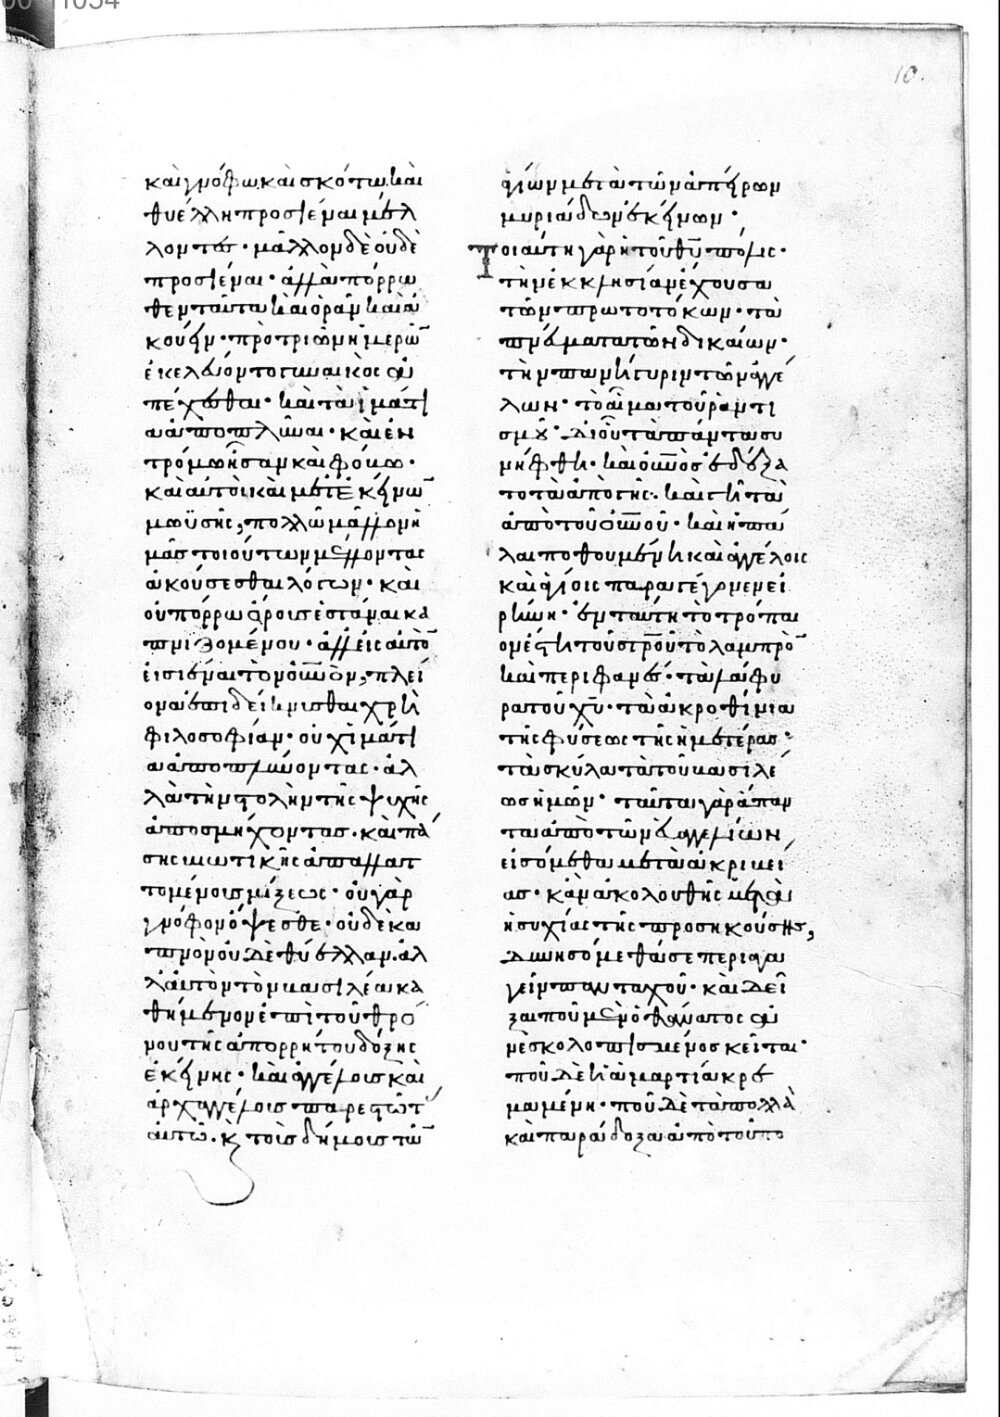 10.
καὶ γνόφω καὶ σκότω καὶ
θυέλλη προσιέναι μέλ
λοντες· μᾶλλον δὲ οὐδὲ
προσιέναι· ἀλλὰ πόρρω
θεν ταῦτα καὶ ὁρᾶν καὶ ἀ
κούειν· πρὸ τριῶν ἡμερῶ
ἐκελεύοντο γυναικὸς ἀ
πέχεσθαι· καὶ τὰ ἱμάτι
α ἀποπλῦναι· καὶ ἐν
τρόμω ἦσαν καὶ φόβω·
καὶ αὐτοὶ καὶ μετ' ἐκείνω
μωϋσῆς, πολλῶ μᾶλλον ἡ
μᾶς τοιούτων μέλλοντας
ἀκούσεσθαι λόγων· καὶ
οὐ πόρρωθεν ὄρους ἑστάναι κα
πνιζομένου· ἀλλ' εἰς αὐτὸ
εἰσιέναι τὸν οὐνὸν, πλεί
ονα ἐπιδείκνυσθαι χρὴ
φιλοσοφίαν· οὐχ ἱμάτι
α ἀποπλύνοντας· ἀλ
λὰ τὴν στολὴν τῆς ψυχῆς
ἀποσμήχοντας· καὶ πά
σης βιωτικῆς ἀπαλλατ
τομένοις μίξεως· οὐ γὰρ
γνόφον ὄψεσθε· οὐδὲ κα
πνὸν οὐδὲ θύελλαν· ἀλ
λ' αὐτὸν τὸν βασιλέα κα
θήμενον ἐπὶ τοῦ θρό
νου τῆς ἀπορρήτου δόξης
ἐκείνης· καὶ ἀγγέλους καὶ
ἀρχαγγέλους παρεστῶτ
αὐτῶ· κ τοὺς δήμους τῶ
ἁγίων μετὰ τῶν ἀπείρων
μυριάδων ἐκείνων·
Τοιαύτη γὰρ ἡ τοῦ θυ πόλις·
τὴν ἐκκλησίαν ἔχουσα
τῶν πρωτοτόκων· τὰ
πνεύματα τῶν δικαίων·
τὴν πανήγυριν τῶν ἀγγέ
λων· τὸ αἷμα τοῦ ῥαντι
σμοῦ· δι' οὗ τὰ πάντα συ
νήφθη· καὶ οὐνὸς ἐδέξα
το τὰ ἀπὸ γῆς· καὶ γῆ τὰ
ἀπὸ τοῦ οὐνοῦ· καὶ ἡ πά
λαι ποθουμένη καὶ ἀγγέλοις
καὶ ἁγίοις παραγέγονεν εἰ
ρήνη· ἐν ταύτη τὸ τρόπαι
ον ἕστηκε τοῦ στροῦ τὸ λαμπρὸ
καὶ περιφανὲς· τὰ λάφυ
ρα τοῦ χυ· τὰ ἀκροθίνια
τῆς φύσεως τῆς ἡμετέρας·
τὰ σκῦλα τὰ τοῦ βασιλέ
ως ἡμῶν· ταῦτα γὰρ ἅπαν
τα ἀπὸ τῶν εὐαγγελίων
εἰσόμεθα μετὰ ἀκριβεί
ας· κἂν ἀκολουθῆς μετὰ
ἡσυχίας τῆς προσηκούσης,
δυνησόμεθά σε περιαγα
γεῖν πανταχοῦ· καὶ δεῖ
ξαι ποῦ μὲν ὁ θάνατος ἀ
νεσκολοπισμένος κεῖται·
ποῦ δὲ ἡ ἁμαρτία κρε
μαμένη· ποῦ δὲ τὰ πολλὰ
καὶ παράδοξα ἀπὸ τοῦ πο